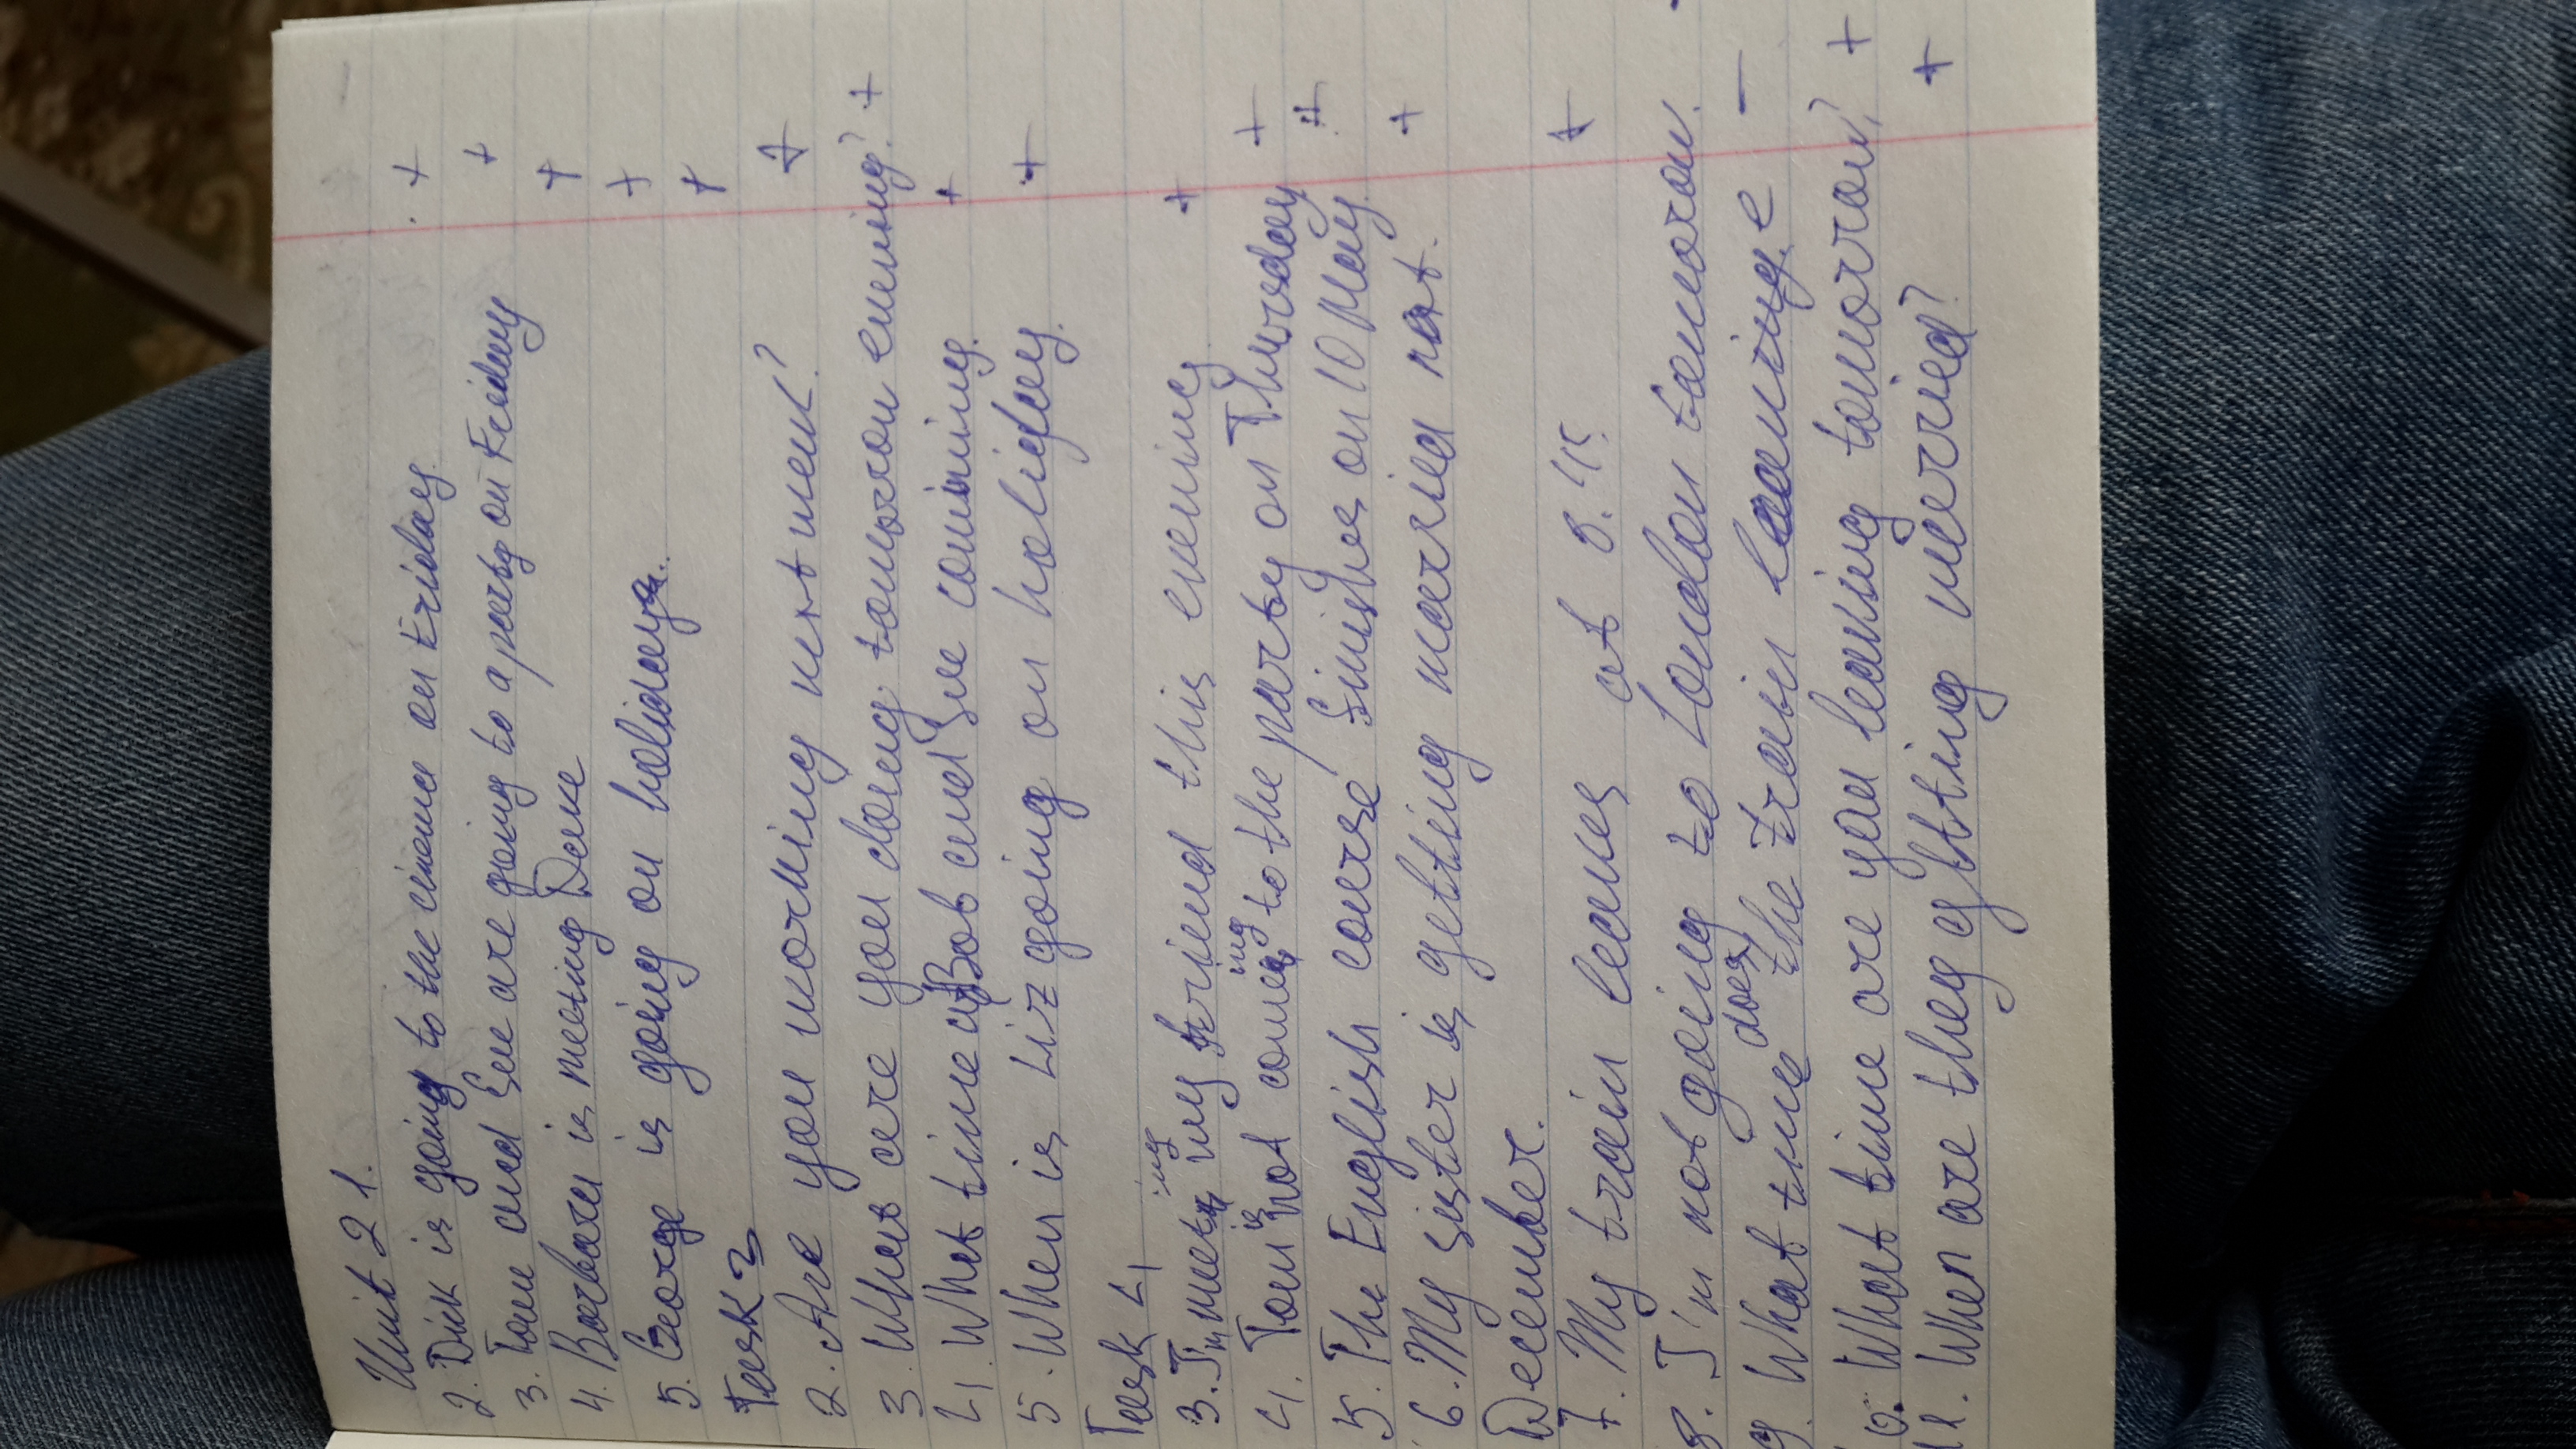 Unit 21.
2. Dick is going to the cinema on Friday. +
3. Tom and Sue are going to a party on Friday +
4. Barbara is meeting Dave +
5. George is going on holiday. +
Task 3 +
2. Are you working next week? +
3. What are you doing tomorrow evening? +
4. What time Bob and Sue coming. +
5. When is Liz going on holiday. +
Task 4
ing
3. I'm meet my friend this evening +
is ing
4. Tom not come to the party on Thursday +
5. The English course finishes on 10 May.
6. My sister is getting married next. +
December.
7. My train leaves at 8.45. +
8. I'm not going to London tomorow. -
does
9. What time the train leave −
10. What time are you leaving tomorrow? +
11. When are they getting married? +